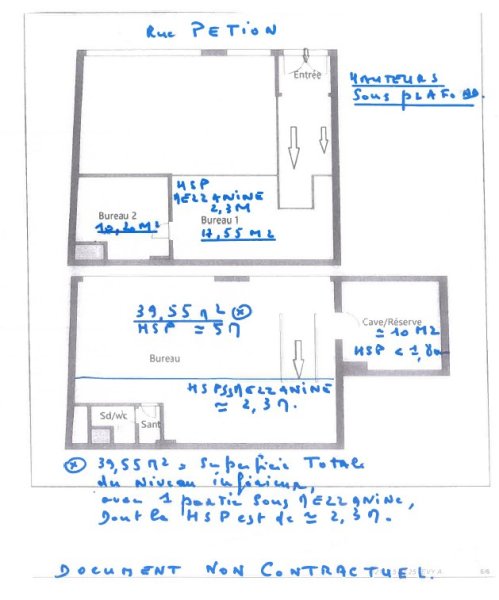 Rue PETION
Entrée
HAUTEURS
Sous PLAFO
HSP
MEZZANINE
2,3M
Bureau 2
10,20 M2
Bureau 1
17,55 M2
39,55 M2 (*)
HSP ≃ 5M
Cave/Réserve
≃ 10 M2
HSP < 1,8m
Bureau
HSP SS MEZZANINE
≃ 2,3M.
Sd/wc
Sant
(*) 39,55M2 = Superficie Totale
du Niveau inférieur,
avec 1 partie sous MEZZANINE,
Dont la HSP est de ≃ 2,3M.
DOCUMENT NON CONTRACTUEL.
6/6